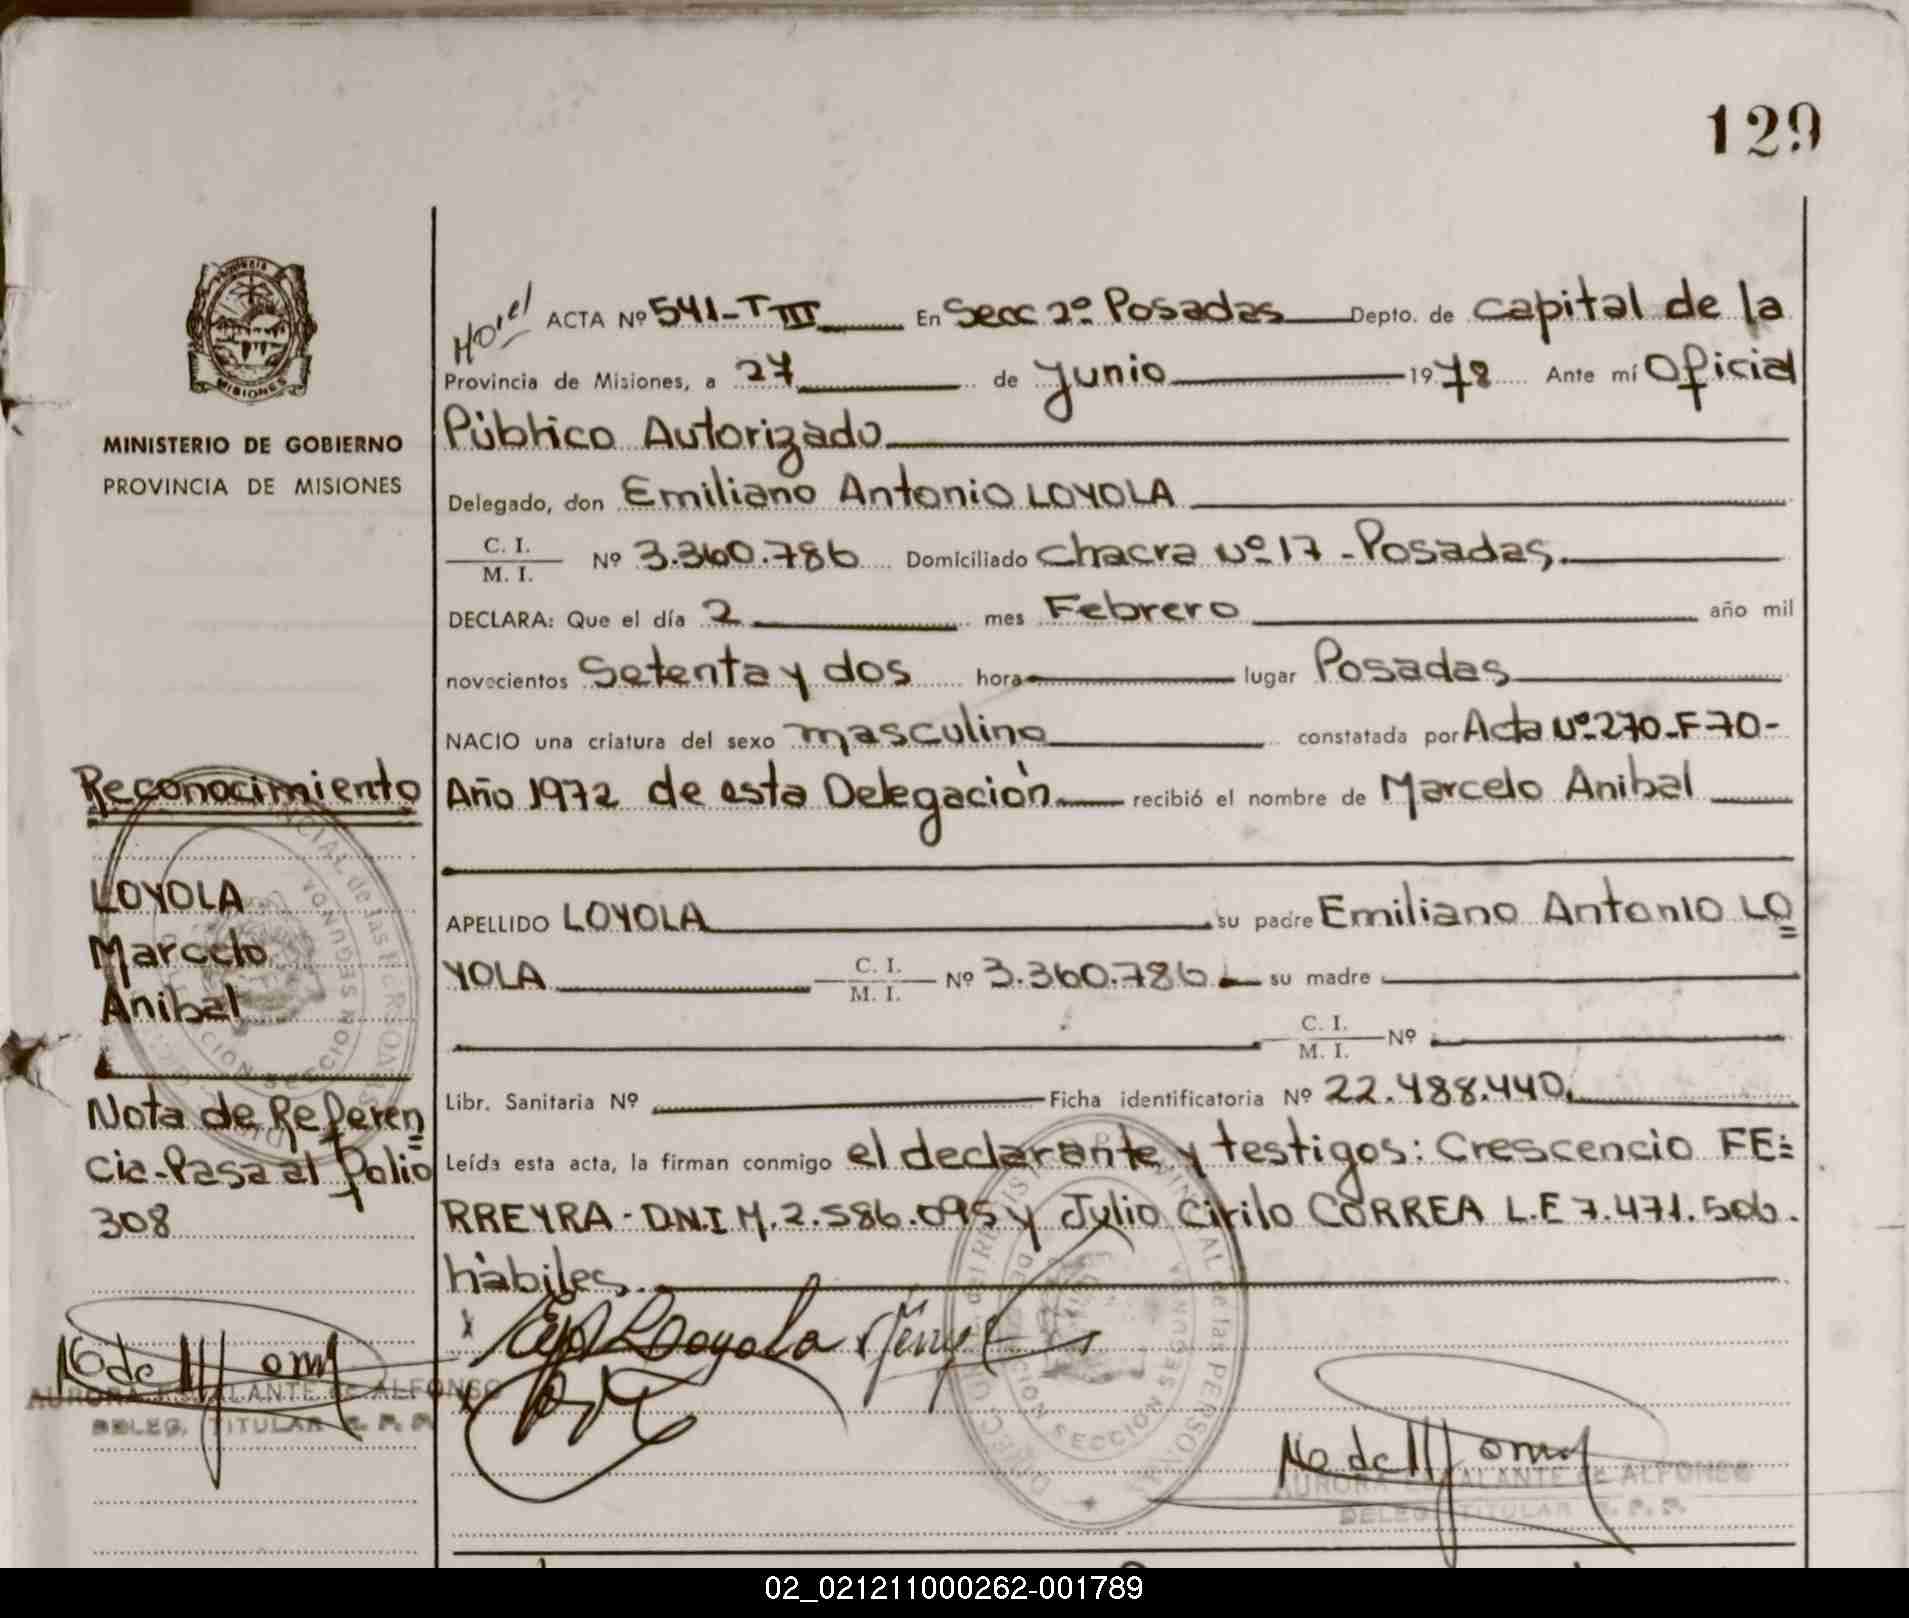 129
PROVINCIA
MISIONES
MINISTERIO DE GOBIERNO
PROVINCIA DE MISIONES
ACTA Nº 541-T III En Secc 2º Posadas Depto. de Capital de la
Provincia de Misiones, a 27 de Junio 1978 Ante mí Oficial
Público Autorizado
Delegado, don Emiliano Antonio LOYOLA
C. I.
M. I. Nº 3.360.786 Domiciliado Chacra Nº 17 - Posadas.
DECLARA: Que el día 2 mes Febrero año mil
novecientos Setenta y dos hora lugar Posadas
NACIO una criatura del sexo masculino constatada por Acta Nº 270-F 70-
Año 1972 de esta Delegación recibió el nombre de Marcelo Anibal
APELLIDO LOYOLA su padre Emiliano Antonio LO
YOLA C. I.
M. I. Nº 3.360.786 su madre
C. I.
M. I. Nº
Libr. Sanitaria Nº Ficha identificatoria Nº 22.488.440
Leída esta acta, la firman conmigo el declarante y testigos: Crescencio FE=
RREYRA - D.N.I M. 2.586.095 y Julio Cirilo CORREA L.E 7.471.506.
hábiles.
Reconocimiento
LOYOLA
Marcelo
Anibal
Nota de Referen
cia-Pasa al folio
308
AURORA ESCALANTE de ALFONSO
DELEG. TITULAR R. P. P.
AURORA ESCALANTE de ALFONSO
DELEG. TITULAR R. P. P.
02_021211000262-001789